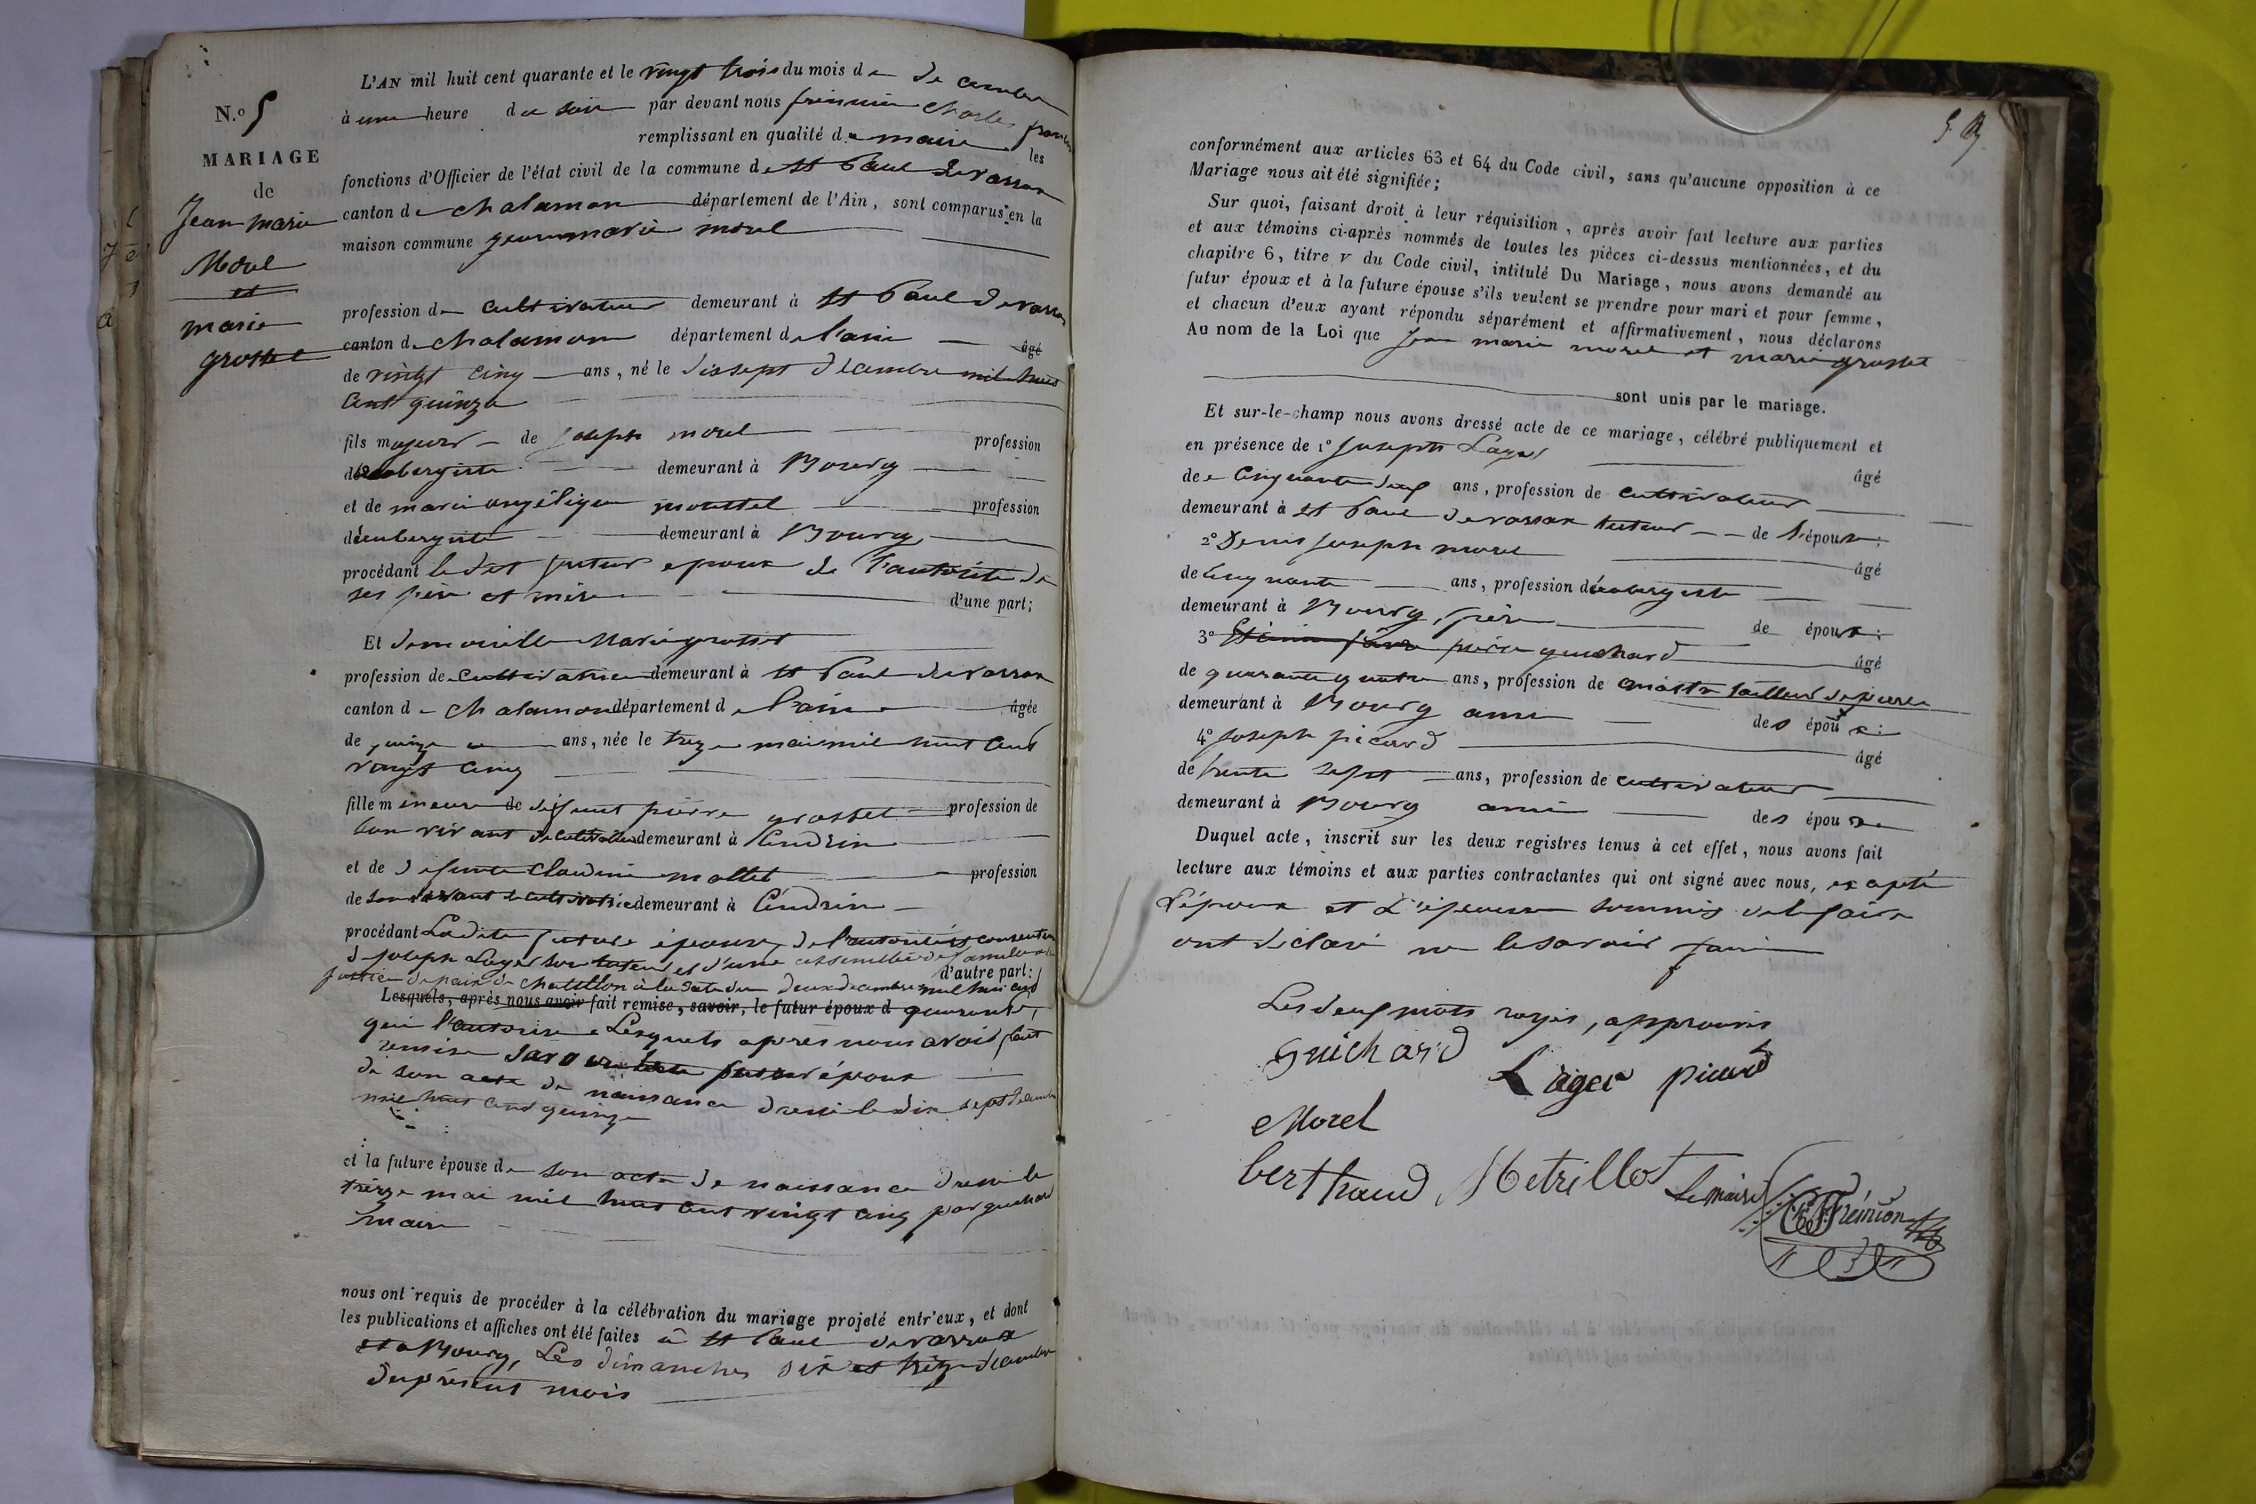 N.o 5
MARIAGE
de
Jean marie
Morel
et
marie
grosset
L'AN mil huit cent quarante et le vingt trois du mois de décembre
à une heure du soir par devant nous freminion Charles françois
remplissant en qualité de maire les
fonctions d'Officier de l'état civil de la commune de st Paul de varax
canton de chalamon département de l'Ain, sont comparus en la
maison commune jean marie morel
profession de cultivateur demeurant à st Paul de varax
canton de chalamon département de l'ain âgé
de vingt cinq ans, né le dix sept décembre mil huit
cent quinze
fils majeur de joseph morel profession
d'aubergiste demeurant à Bourg
et de marie angélique mouttel profession
d'aubergiste demeurant à Bourg
procédant le dit futur epoux de l'autorité de
ses père et mère d'une part;
Et demoiselle Marie grosset
profession de cultivatrice demeurant à st Paul de varax
canton de chalamon département de l'ain âgée
de quinze ans, née le treize mai mil huit cent
vingt cinq
fille mineure de défunt pierre grosset profession de
son vivant de cultivateur demeurant à Condrin
et de défunte Claudine mollet profession
de son vivant de cultivatrice demeurant à Condrin
procédant Ladite future épouse, de l'autorité et consentem
de joseph Lager son tuteur et d'une assemblée de famille
justice de paix de chatillon à la date du deux décembre mil huit cent
d'autre part:
Lesquels, après nous avoir fait remise, savoir, le futur époux d quarante,
qui l'autorise Lesquels après nous avoir fait
remise savoir le futur époux
de son acte de naissance dressé le dix sept décembre
mil huit cent quinze
et la future épouse de son acte de naissance dressé le
treize mai mil huit cent vingt cinq par guichard
maire
nous ont requis de procéder à la célébration du mariage projeté entr'eux, et dont
les publications et affiches ont été faites à st Paul de varax
et à Bourg, Les dimanches six et treize décembre
du présent mois
conformément aux articles 63 et 64 du Code civil, sans qu'aucune opposition à ce
Mariage nous ait été signifiée;
Sur quoi, faisant droit à leur réquisition, après avoir fait lecture aux parties
et aux témoins ci-après nommés de toutes les pièces ci-dessus mentionnées, et du
chapitre 6, titre V du Code civil, intitulé Du Mariage, nous avons demandé au
futur époux et à la future épouse s'ils veulent se prendre pour mari et pour femme,
et chacun d'eux ayant répondu séparément et affirmativement, nous déclarons
Au nom de la Loi que Jean marie morel et marie grosset
sont unis par le mariage.
Et sur-le-champ nous avons dressé acte de ce mariage, célébré publiquement et
en présence de 1o Joseph Lager âgé
de cinquante deux ans, profession de cultivateur
demeurant à st Paul de varax tuteur de l'épouse;
2o Denis joseph morel âgé
de cinquante ans, profession d'aubergiste
demeurant à Bourg, père de époux;
3o pierre guichard âgé
de quarante quatre ans, profession de maitre tailleur de pierre
demeurant à Bourg ami des époux:
4o joseph picard âgé
de trente sept ans, profession de cultivateur
demeurant à Bourg ami des époux
Duquel acte, inscrit sur les deux registres tenus à cet effet, nous avons fait
lecture aux témoins et aux parties contractantes qui ont signé avec nous, excepté
L'époux et L'épouse sommés de le faire
ont déclaré ne le savoir faire
Les deux mots rayés, approuvés
Guichard
Lager picard
Morel
berthaud Metrillot Le maire
Ch F Fréminion